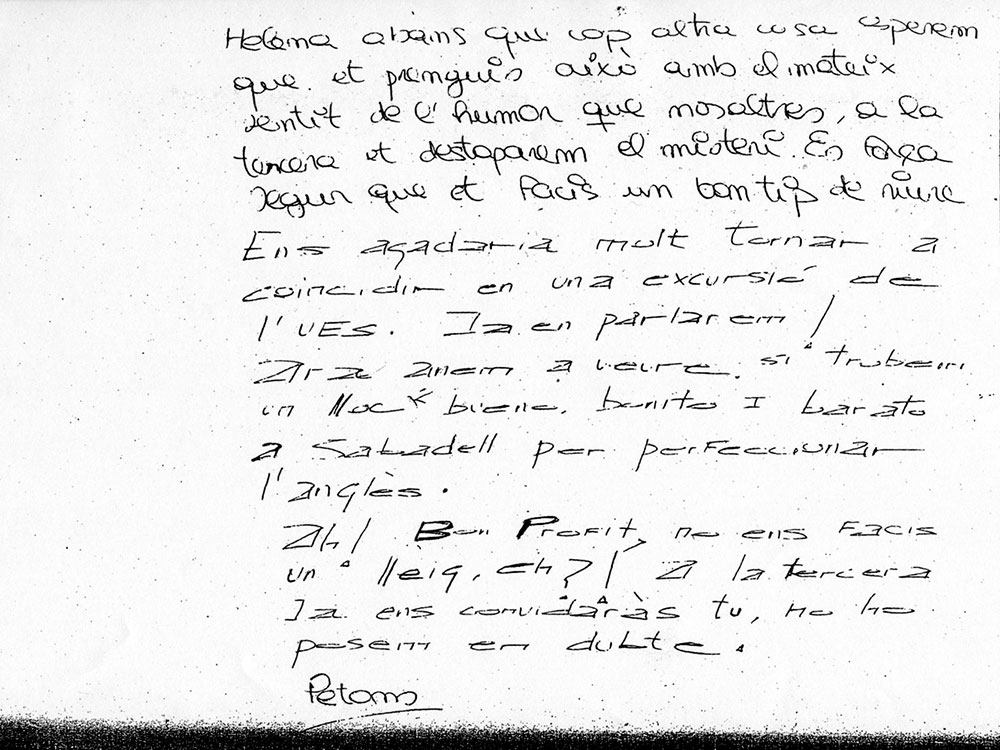 Helena abans que cap altra cosa esperem
que et prenguis això amb el mateix
sentit de l'humor que nosaltres, a la
tercera et destaparem el misteri. És força
segur que et facis un bon tip de riure
Ens agadaria molt tornar a
coincidir en una excursió de
l'UES. Ja en parlarem!
Ara anem a veure si trobem
un lloc bueno, bonito I barato
a Sabadell per perfeccionar
l'anglès.
Ah! Bon Profit, no ens facis
un lleig, eh?! A la tercera
Ja ens convidaràs tu, no ho
posem en dubte.
Petons